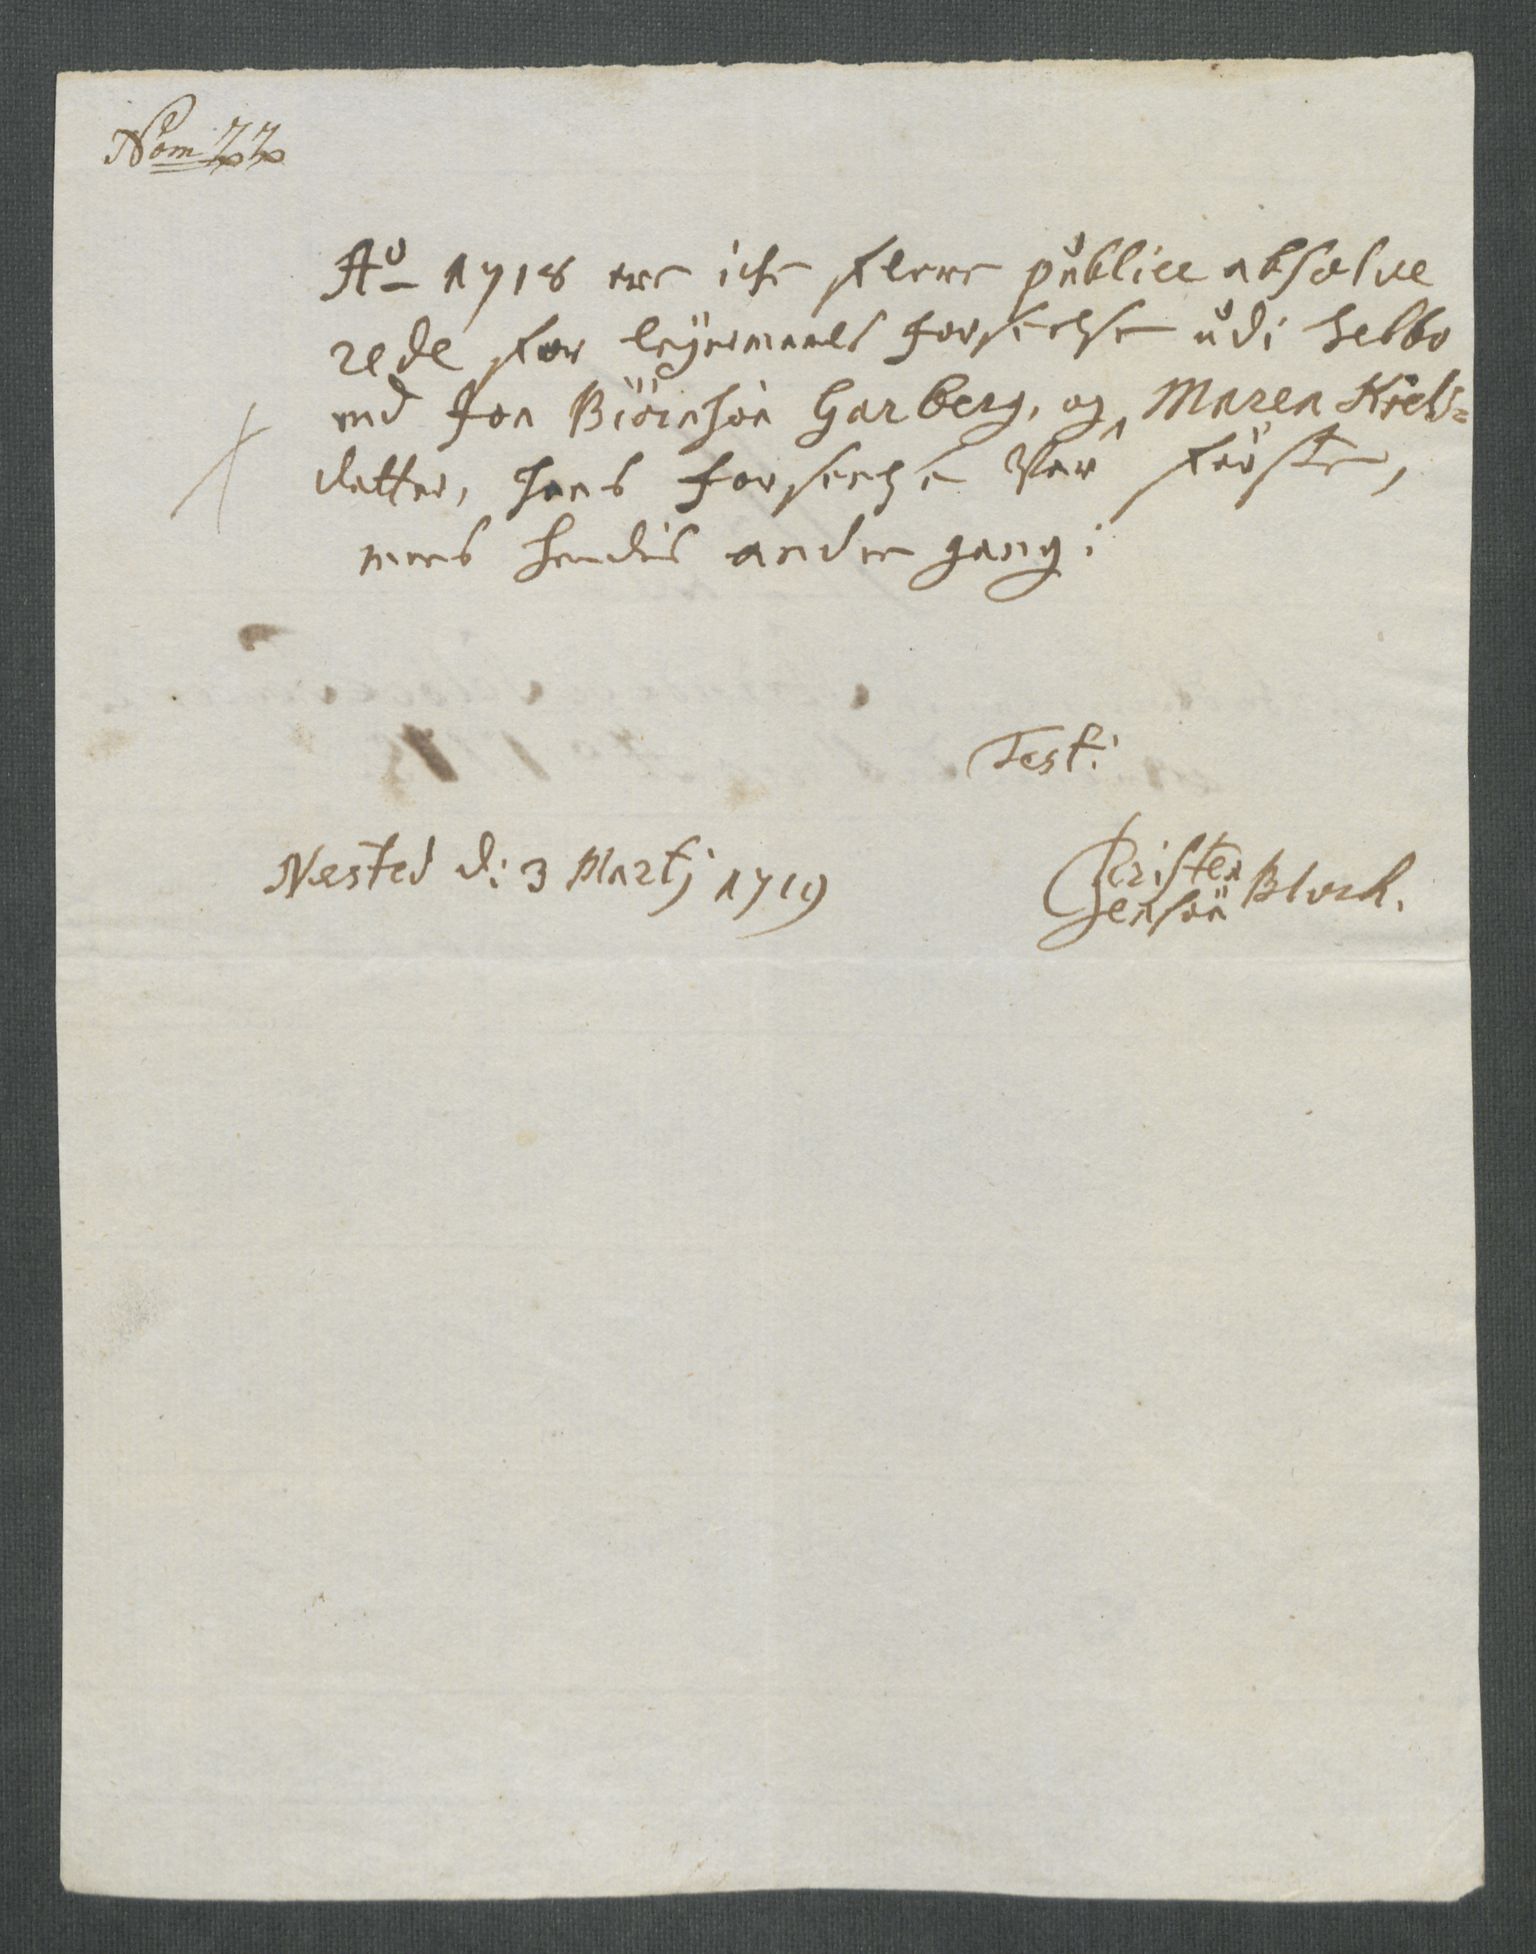 Nom 22
Ao 1718 ere iche flere publice absolve
rede for leyermaals forseelse udi Selbo
end Jon Biörnsön Garberg, og Maren Kield=
datter, hans forseelse var første,
mens hendis anden gang:
Test:
Næsted d: 3 Martj 1719
Christen Jensön Bloch.